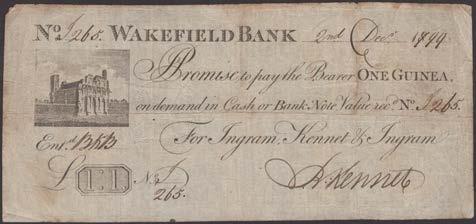 No J265. WAKEFIELD BANK 2nd Decr.
Promise to pay the Bearer ONE GUINEA,
on demand in Cash or Bank Note Value recd. No. J265.
Entd. For Ingram, Kennet & Ingram
£ 1:1 No. J
265. Kennet